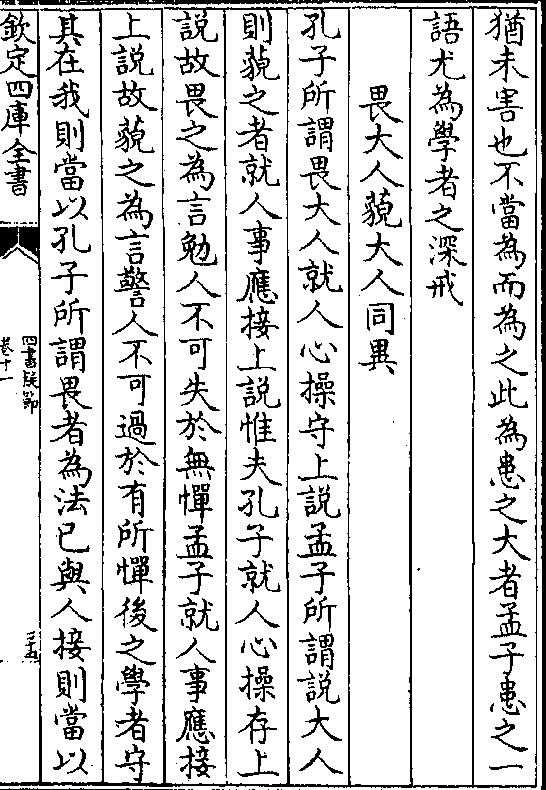 猶未害也不當為而為之此為患之大者孟子患之一
語尤為學者之深戒
畏大人藐大人同異
孔子所謂畏大人就人心操守上説孟子所謂説大人
則藐之者就人事應接上説惟夫孔子就人心操存上
説故畏之為言勉人不可失於無憚孟子就人事應接
上説故藐之為言警人不可過於有所憚後之學者守
其在我則當以孔子所謂畏者為法已與人接則當以
欽定四庫全書
四書疑節
卷十一
三十五